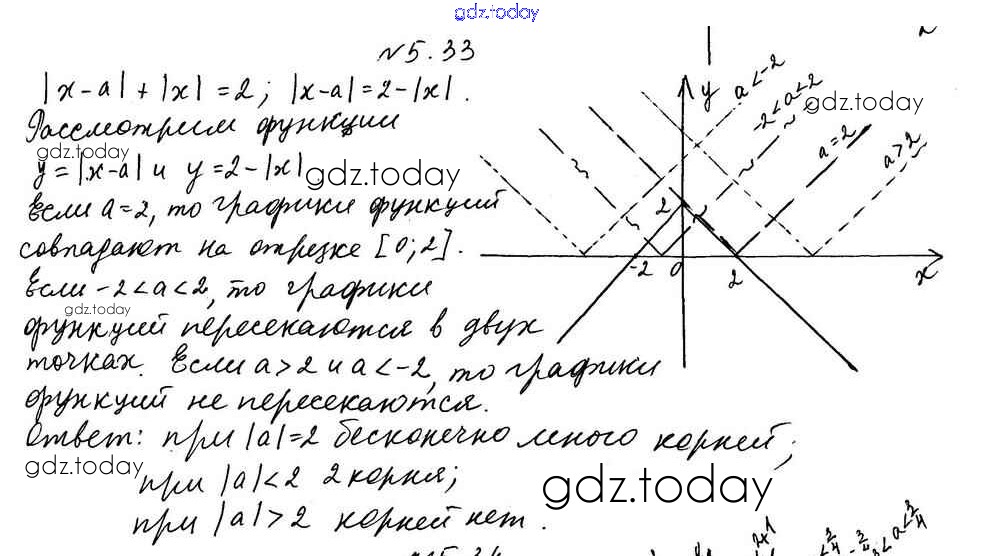 gdz.today
№5.33
|x-a|+|x|=2; |x-a|=2-|x|.
Рассмотрим функции
gdz.today
y=|x-a| и y=2-|x|
gdz.today
Если a=2, то графики функций
совпадают на отрезке [0;2].
Если -2<a<2, то графики
gdz.today
функций пересекаются в двух
точках. Если a>2 и a<-2, то графики
функций не пересекаются.
Ответ: при |a|=2 бесконечно много корней;
gdz.today
при |a|<2 2 корня;
gdz.today
при |a|>2 корней нет.
y
a<-2
-2<a<2
gdz.today
a=2
a>2
2
-2
0
2
x